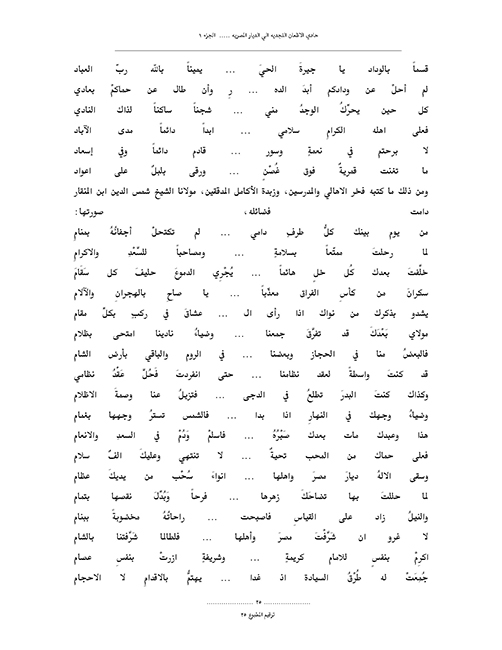 حادي الاظعان النجديه الي الديار المصريه ..... الجزء ١
قسماً بالوداد يا جيرةَ الحيّ ... يميناً بالله ربّ العباد
لم أحلْ عن ودادكم أبدَ الده ... رِ وأن طال عن حماكمْ بعادي
كل حين يحرّكُ الوجدُ مني ... شجناً ساكناً لذاك النادي
فعلى اهله الكرام سلامي ... ابداً دائماً مدى الآباد
لا برحتم في نعمة وسرور ... قادم دائماً وفي إسعاد
ما تغنت قمريةٌ فوق غُصْنٍ ... ورقى بلبلٌ على اعواد
ومن ذلك ما كتبه فخر الاهالي والمدرسين، وزبدة الأكامل المدققين، مولانا الشيخ شمس الدين ابن المنقار
دامت فضائله، صورتها:
من يوم بينك كلُّ طرفٍ دامي ... لم تكتحلْ أجفانُهُ بمنام
لما رحلتَ ممتّعاً بسلامةٍ ... ومصاحباً للسَّعْدِ والاكرام
خلَّفتَ بعدك كُل خلٍ هائماً ... يُجْرِي الدموعَ حليفَ كل سَقَامَ
سكرانَ من كأسِ الفراق معذّباً ... يا صاحِ بالهجرانِ والآلام
يشدو بذكرك من نواك اذا رأى ال ... عشاقَ في ركبٍ بكلّ مقام
مولاي بَعْدَكَ قد تفرَّقَ جمعنا ... وضياءُ نادينا امتحى بظلام
فالبعضُ منا في الحجاز وبعضنا ... في الروم والباقي بأرض الشام
قد كنتَ واسطةً لعقد نظامنا ... حتى انفردتَ فَحُلَّ عَقْدُ نظامي
وكذاك كنتَ البدرَ تطلعُ في الدجى ... فتزيلُ عنا وصمةَ الاظلام
وضياءُ وجهك في النهار اذا بدا ... فالشمس تسترُ وجهها بغمام
هذا وعبدك مات بعدك صَبْرُهُ ... فاسلمْ وَدُمْ في السعد والانعام
فعلى حماك من المحب تحيةٌ ... لا تنتهي وعليكَ الفُ سلام
وسقى الالهُ ديارَ مصرَ واهلها ... انواءَ سُحْبٍ من يديكَ عظام
لما حللتَ بها تضاحَكَ زهرها ... فرحاً وَبُدِّلَ نقصها بتمام
والنيلُ زاد على القياسِ فاصبحت ... راحاتُهُ مخضوبةً ببنام
لا غرو ان شرَّفْتَ مصرَ وأهلها ... فلطالما شرَّفتنا بالشام
اكرمْ بنفسٍ للامام كريمةٍ ... وشريفةٍ ازرتْ بنفسِ عصام
جُمِعَتْ له طُرُقُ السيادة اذ غدا ... يهتمُّ بالاقدام لا الاحجام
...................... ٢٥ ......................
ترقيم المطبوع ٢٥